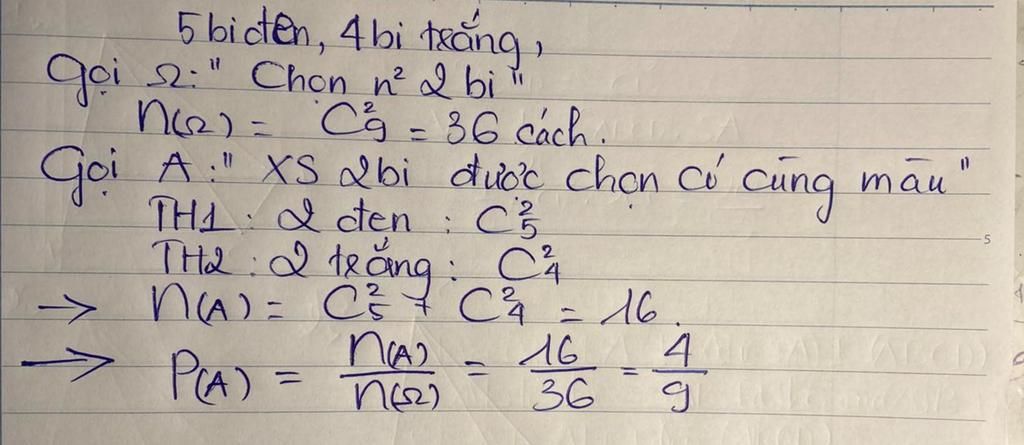 5 bi đen, 4 bi trắng,
Gọi Ω: " Chọn n² 2 bi "
n(Ω) = C²₉ = 36 cách.
Gọi A: " XS 2 bi được chọn có cùng màu "
TH1 : 2 đen : C²₅
TH2 : 2 trắng : C²₄
→ n(A) = C²₅ + C²₄ = 16.
→ P(A) = n(A)/n(Ω) = 16/36 = 4/9
5